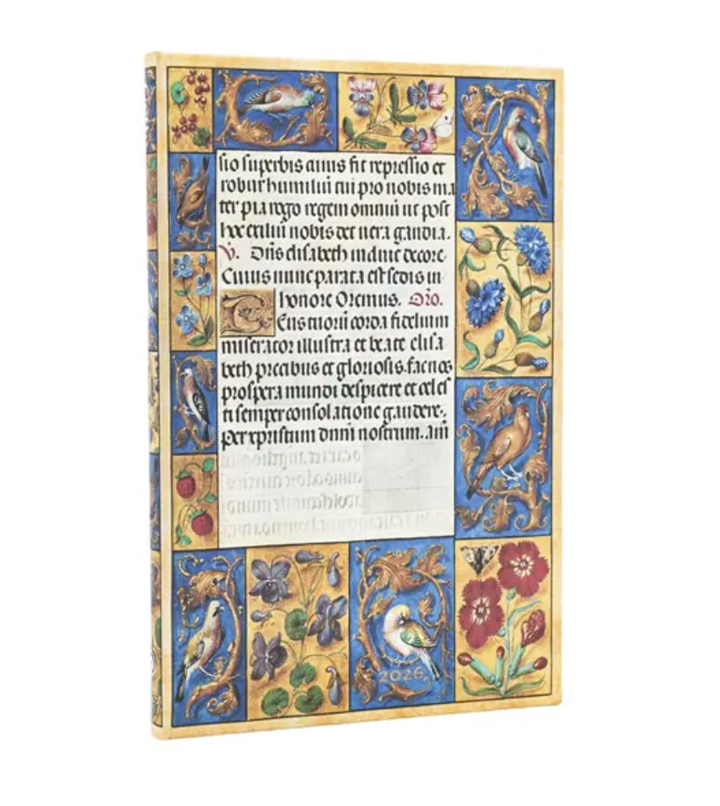 sio superbis cuius fit repressio et
robur humiliū tui pro nobis ma
ter pia rogo regem omniū ut post
hoc exiliū nobis det vera gaudia.
V. Ors elisabeth indue decore.
Cuius nunc parata est sedis in
honore Oremus. Oro.
Deus tuorū corda fidelium
miserator illustra et beate elisa
beth precibus et gloriosis. fac nos
prospera mundi despicere et celes
ti semper consolatione gaudere.
per xpristum dnm nostrum. am
2026